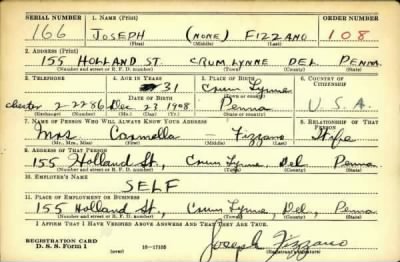 SERIAL NUMBER 1. NAME (Print) ORDER NUMBER
166 JOSEPH (NONE) FIZZANO 108
(First) (Middle) (Last)
2. ADDRESS (Print)
155 HOLLAND ST. CRUM LYNNE DEL. PENNA.
(Number and street or R. F. D. number) (Town) (County) (State)
3. TELEPHONE 4. AGE IN YEARS 5. PLACE OF BIRTH 6. COUNTRY OF CITIZENSHIP
31 Crum Lynne
DATE OF BIRTH (Town or county)
Chester 2-2286 Dec 23 1908 Penna U.S.A.
(Exchange) (Number) (Mo.) (Day) (Yr.) (State or country)
7. NAME OF PERSON WHO WILL ALWAYS KNOW YOUR ADDRESS 8. RELATIONSHIP OF THAT PERSON
Mrs Carmella — Fizzano Wife
(Mr., Mrs., Miss) (First) (Middle) (Last)
9. ADDRESS OF THAT PERSON
155 Holland St., Crum Lynne, Del Penna.
(Number and street or R. F. D. number) (Town) (County) (State)
10. EMPLOYER'S NAME
SELF
11. PLACE OF EMPLOYMENT OR BUSINESS
155 Holland St., Crum Lynne, Del., Penna
(Number and street or R. F. D. number) (Town) (County) (State)
I AFFIRM THAT I HAVE VERIFIED ABOVE ANSWERS AND THAT THEY ARE TRUE.
REGISTRATION CARD
D. S. S. Form 1 (over) 16—17105 Joseph Fizzano
(Registrant's signature)